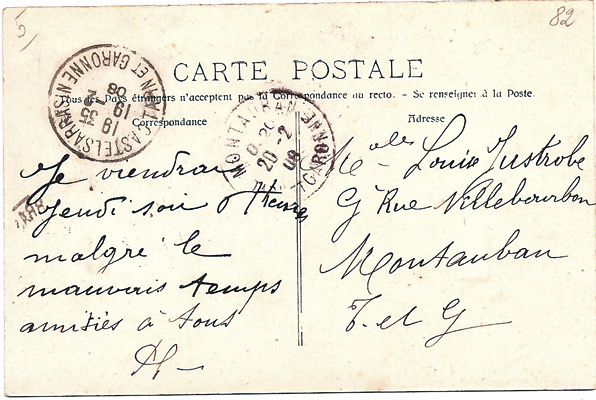 5,
82
CARTE POSTALE
Tous les Pays étrangers n'acceptent pas la Correspondance au recto. - Se renseigner à la Poste.
Correspondance
Adresse
CASTELSARRASIN TARN ET GARONNE
18 35
19 2
08
MONTAUBAN GARONNE
20 - 2
08
GARE
Je viendrai
jeudi soir
malgré le
mauvais temps
amitiés à tous
Louise Justrobe
Rue Villebourbon
Montauban
T. et G